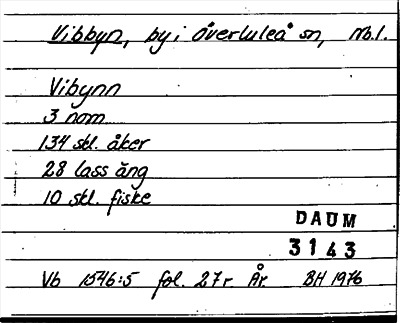 Vibbyn, by i överluleå sn, Nb.l.
Vibynn
3 nom
134 skl. åker
28 lass äng
10 skl. fiske
DAUM
3143
Vb 1546:5 fol. 27r År BH 1976